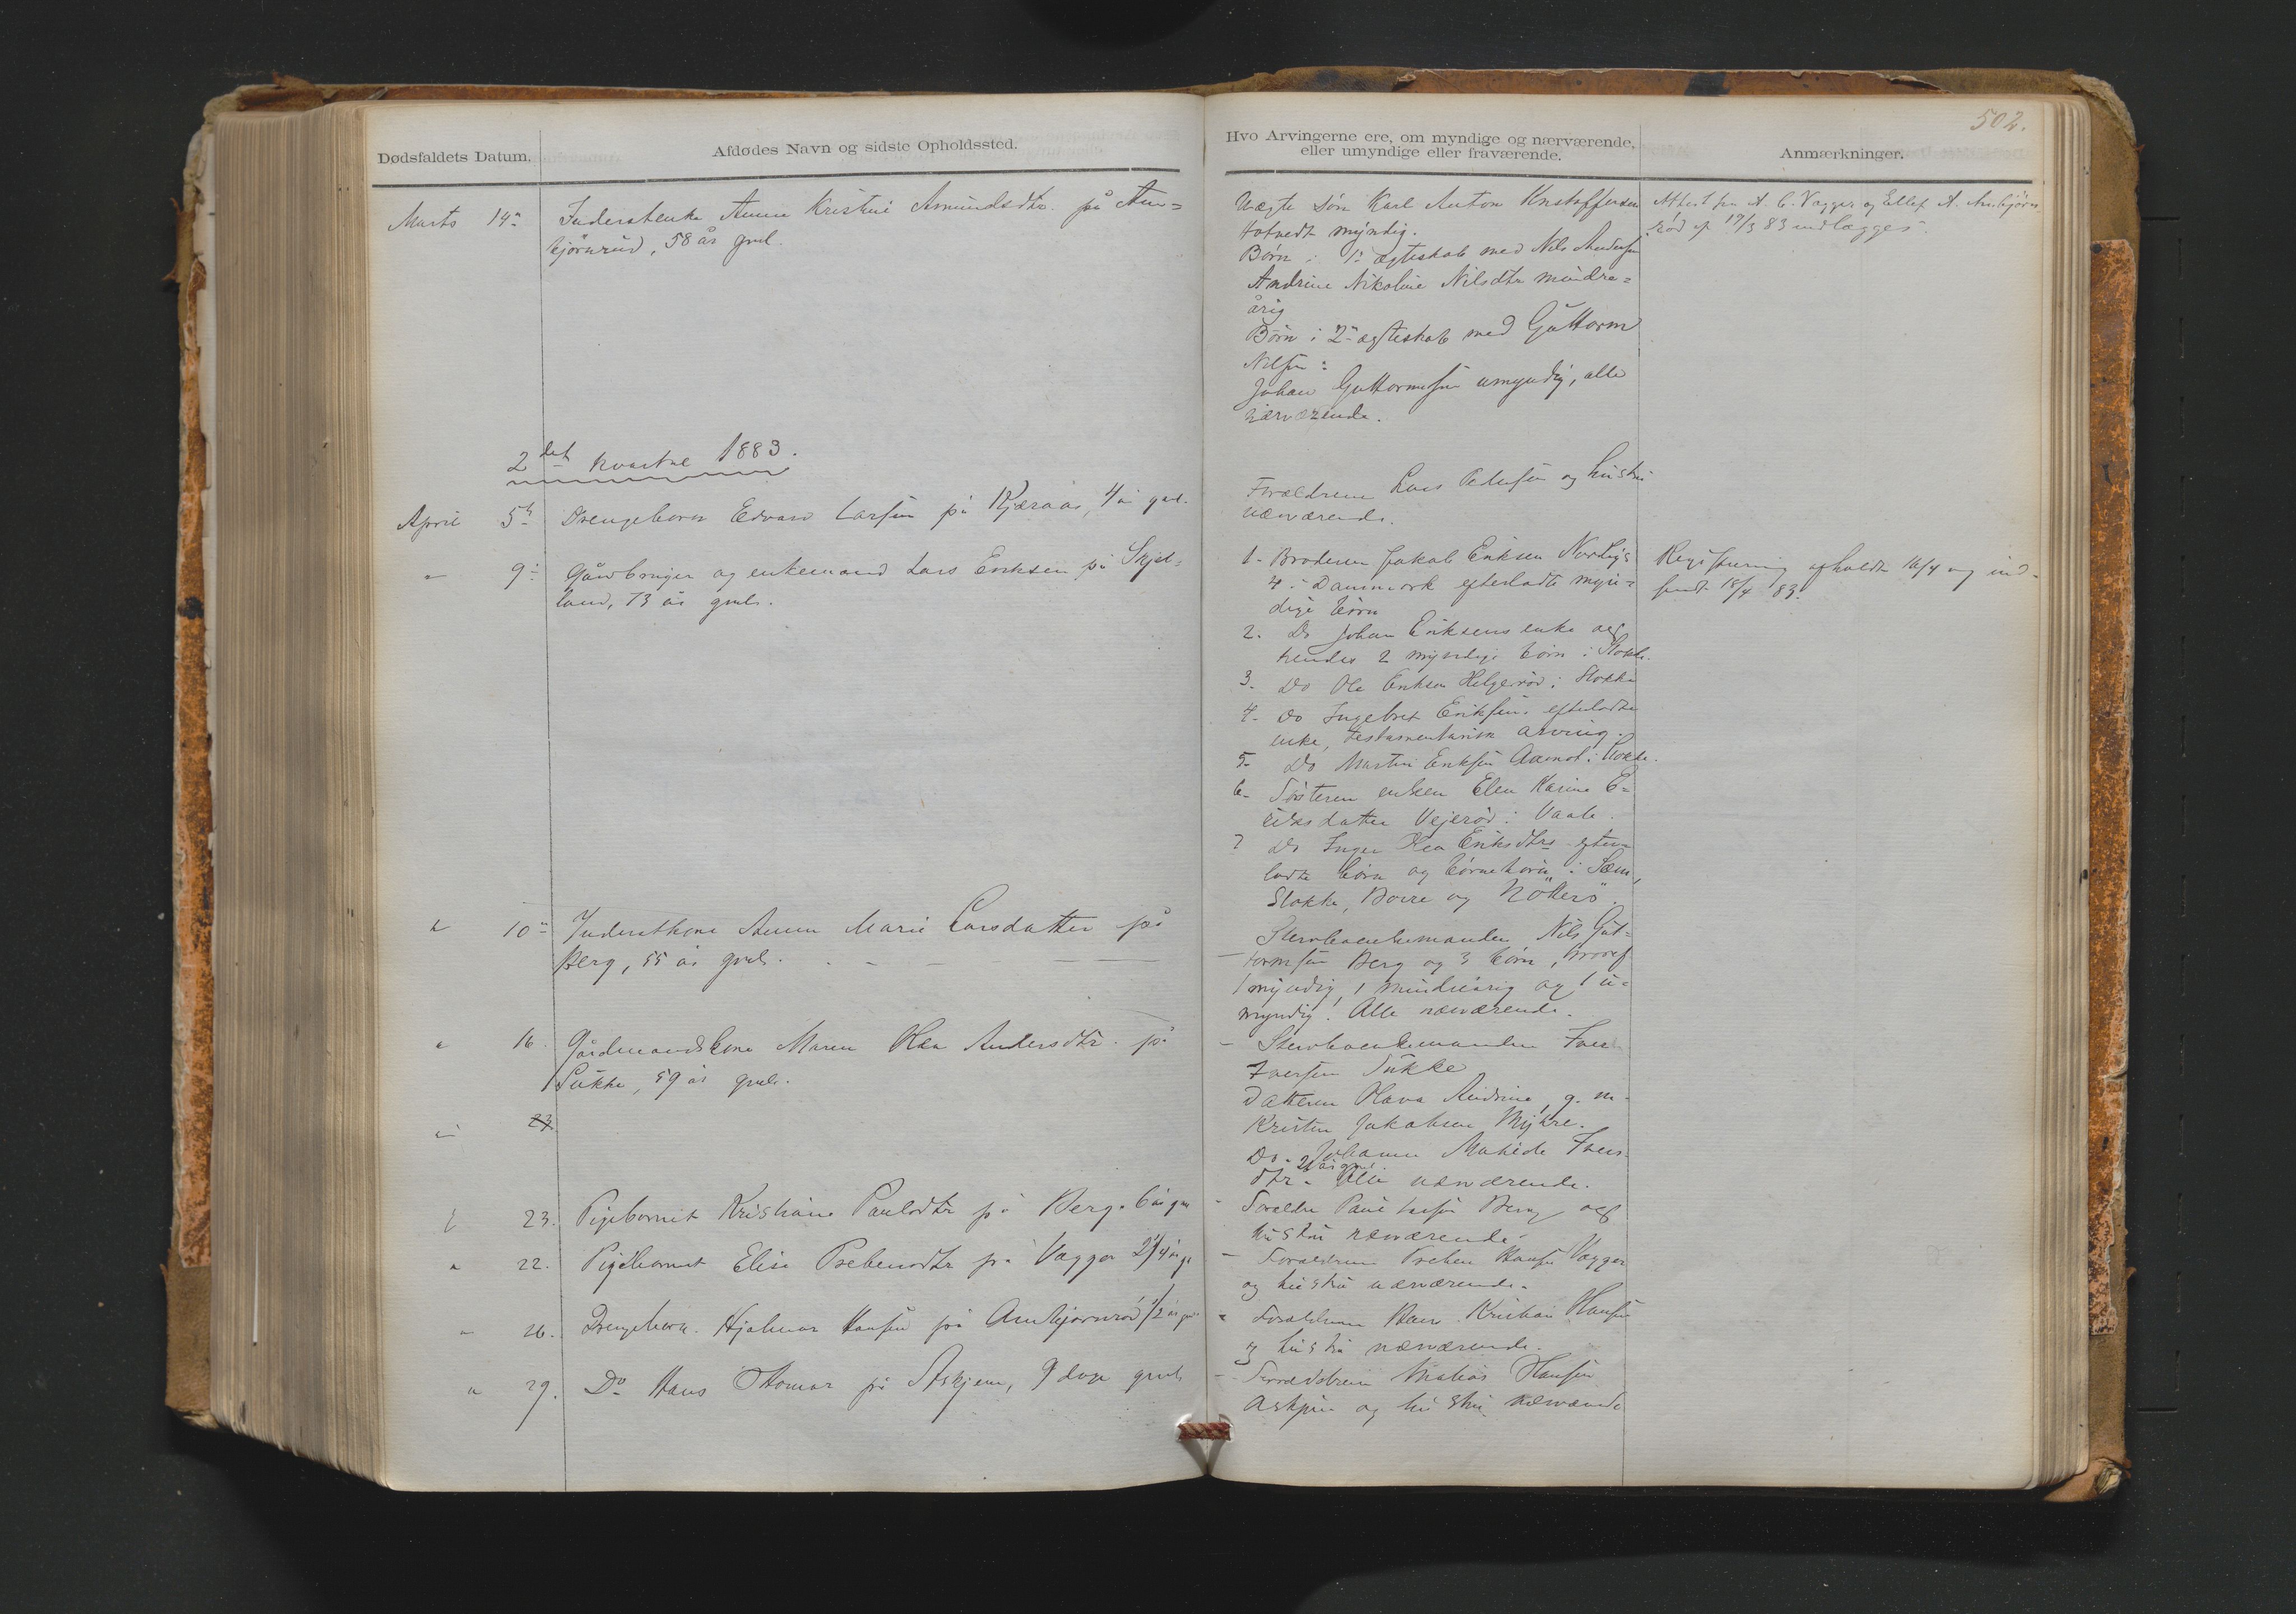 502.
Dødsfaldets Datum.
Afdødes Navn og sidste Opholdssted.
Hvo Arvingerne ere, om myndige og nærværende,
eller umyndige eller fraværende.
Anmærkninger.
Marts 14de
Inderstenke Anna Kristine Amundsdtr. på Arn=
bjørnrud, 58 år gml.
Uægte søn Karl Anton Kristoffersen
myndig.
Børn i 1ste ægteskab med Nils Andersen
Andrine Nikoline Nilsdtr mindre=
årig
Børn i 2det ægteskab med Guttorm
Nilsen:
Johan Guttormsen umyndig, alle
nærværende.
Attest fra A. C. Vegger og Ellef A. Arnbjørn
rød af 17/3 83 indlægges.
2det kvartal 1883.
April 5te
Drengebarn Edvard Larsen på Kjæraas, 4 år gml.
Forældrene Lars Pedersen og hustru
nærværende.
" 9de
Gårdbruger og enkemand Lars Eriksen på Skjel=
land, 73 år gml.
1. Broderen Jakob Eriksen
4 i Danmark efterladte myn=
dige børn
2. Do Johan Eriksens enke og
hendes 2 myndige børn i Stokke.
3. Do Ole Eriksen Helgerød i Stokke
4. Do Ingebret Eriksens efterladte
enke, testamentarisk arving.
5. Do Martin Eriksen Aamot i Stokke.
6. Søsteren enken Elen Karine E=
riksdatter Vejerød i Vaale.
7 Do Inger Kea Eriksdtrs efter=
ladte børn og børnebørn i Sæm,
Stokke, Borre og Nøtterø.
Registrering afholdt 16/4 og ind=
sendt 18/4 83.
" 10de
Inderstkone Anna Marie Larsdatter på
Berg, 55 år gml.
Sterboenkemanden Nils Gut=
tormsen Berg og 3 børn, hvoraf
1 myndig, 1 mindreårig og 1 u=
myndig. Alle nærværende.
" 16.
Gårdmandskone Maren Helen Andersdtr. på
Sukke, 59 år gml.
Sterboenkemanden Iver
Iversen Sukke
Datteren Hava Andrine, g. m.
Kristen Jakobsen Myhre.
Do Johanne Mathilde Ivers=
dtr. 21 år gml. Alle nærværende.
" 23
" 23.
Pigebarnet Kristiane Paulsdtr på Berg. 6 år gml
Forældre Paul Larsen Berg og
hustru nærværende
" 22.
Pigebarnet Elise Prebensdtr på Vegger 2 1/4 år gl
Forældrene Preben Hansen Vegger
og hustru nærværende.
" 26.
Drengebarn. Hjalmar Hansen på Arnbjørnrød 1/2 år gml
Forældrene Hans Kristian Hansen
og hustru nærværende.
" 29.
Do Hans Thomas på Askjem, 9 dage gml.
Forældrene Mathias Hansen
Askjem og hustru nærværende